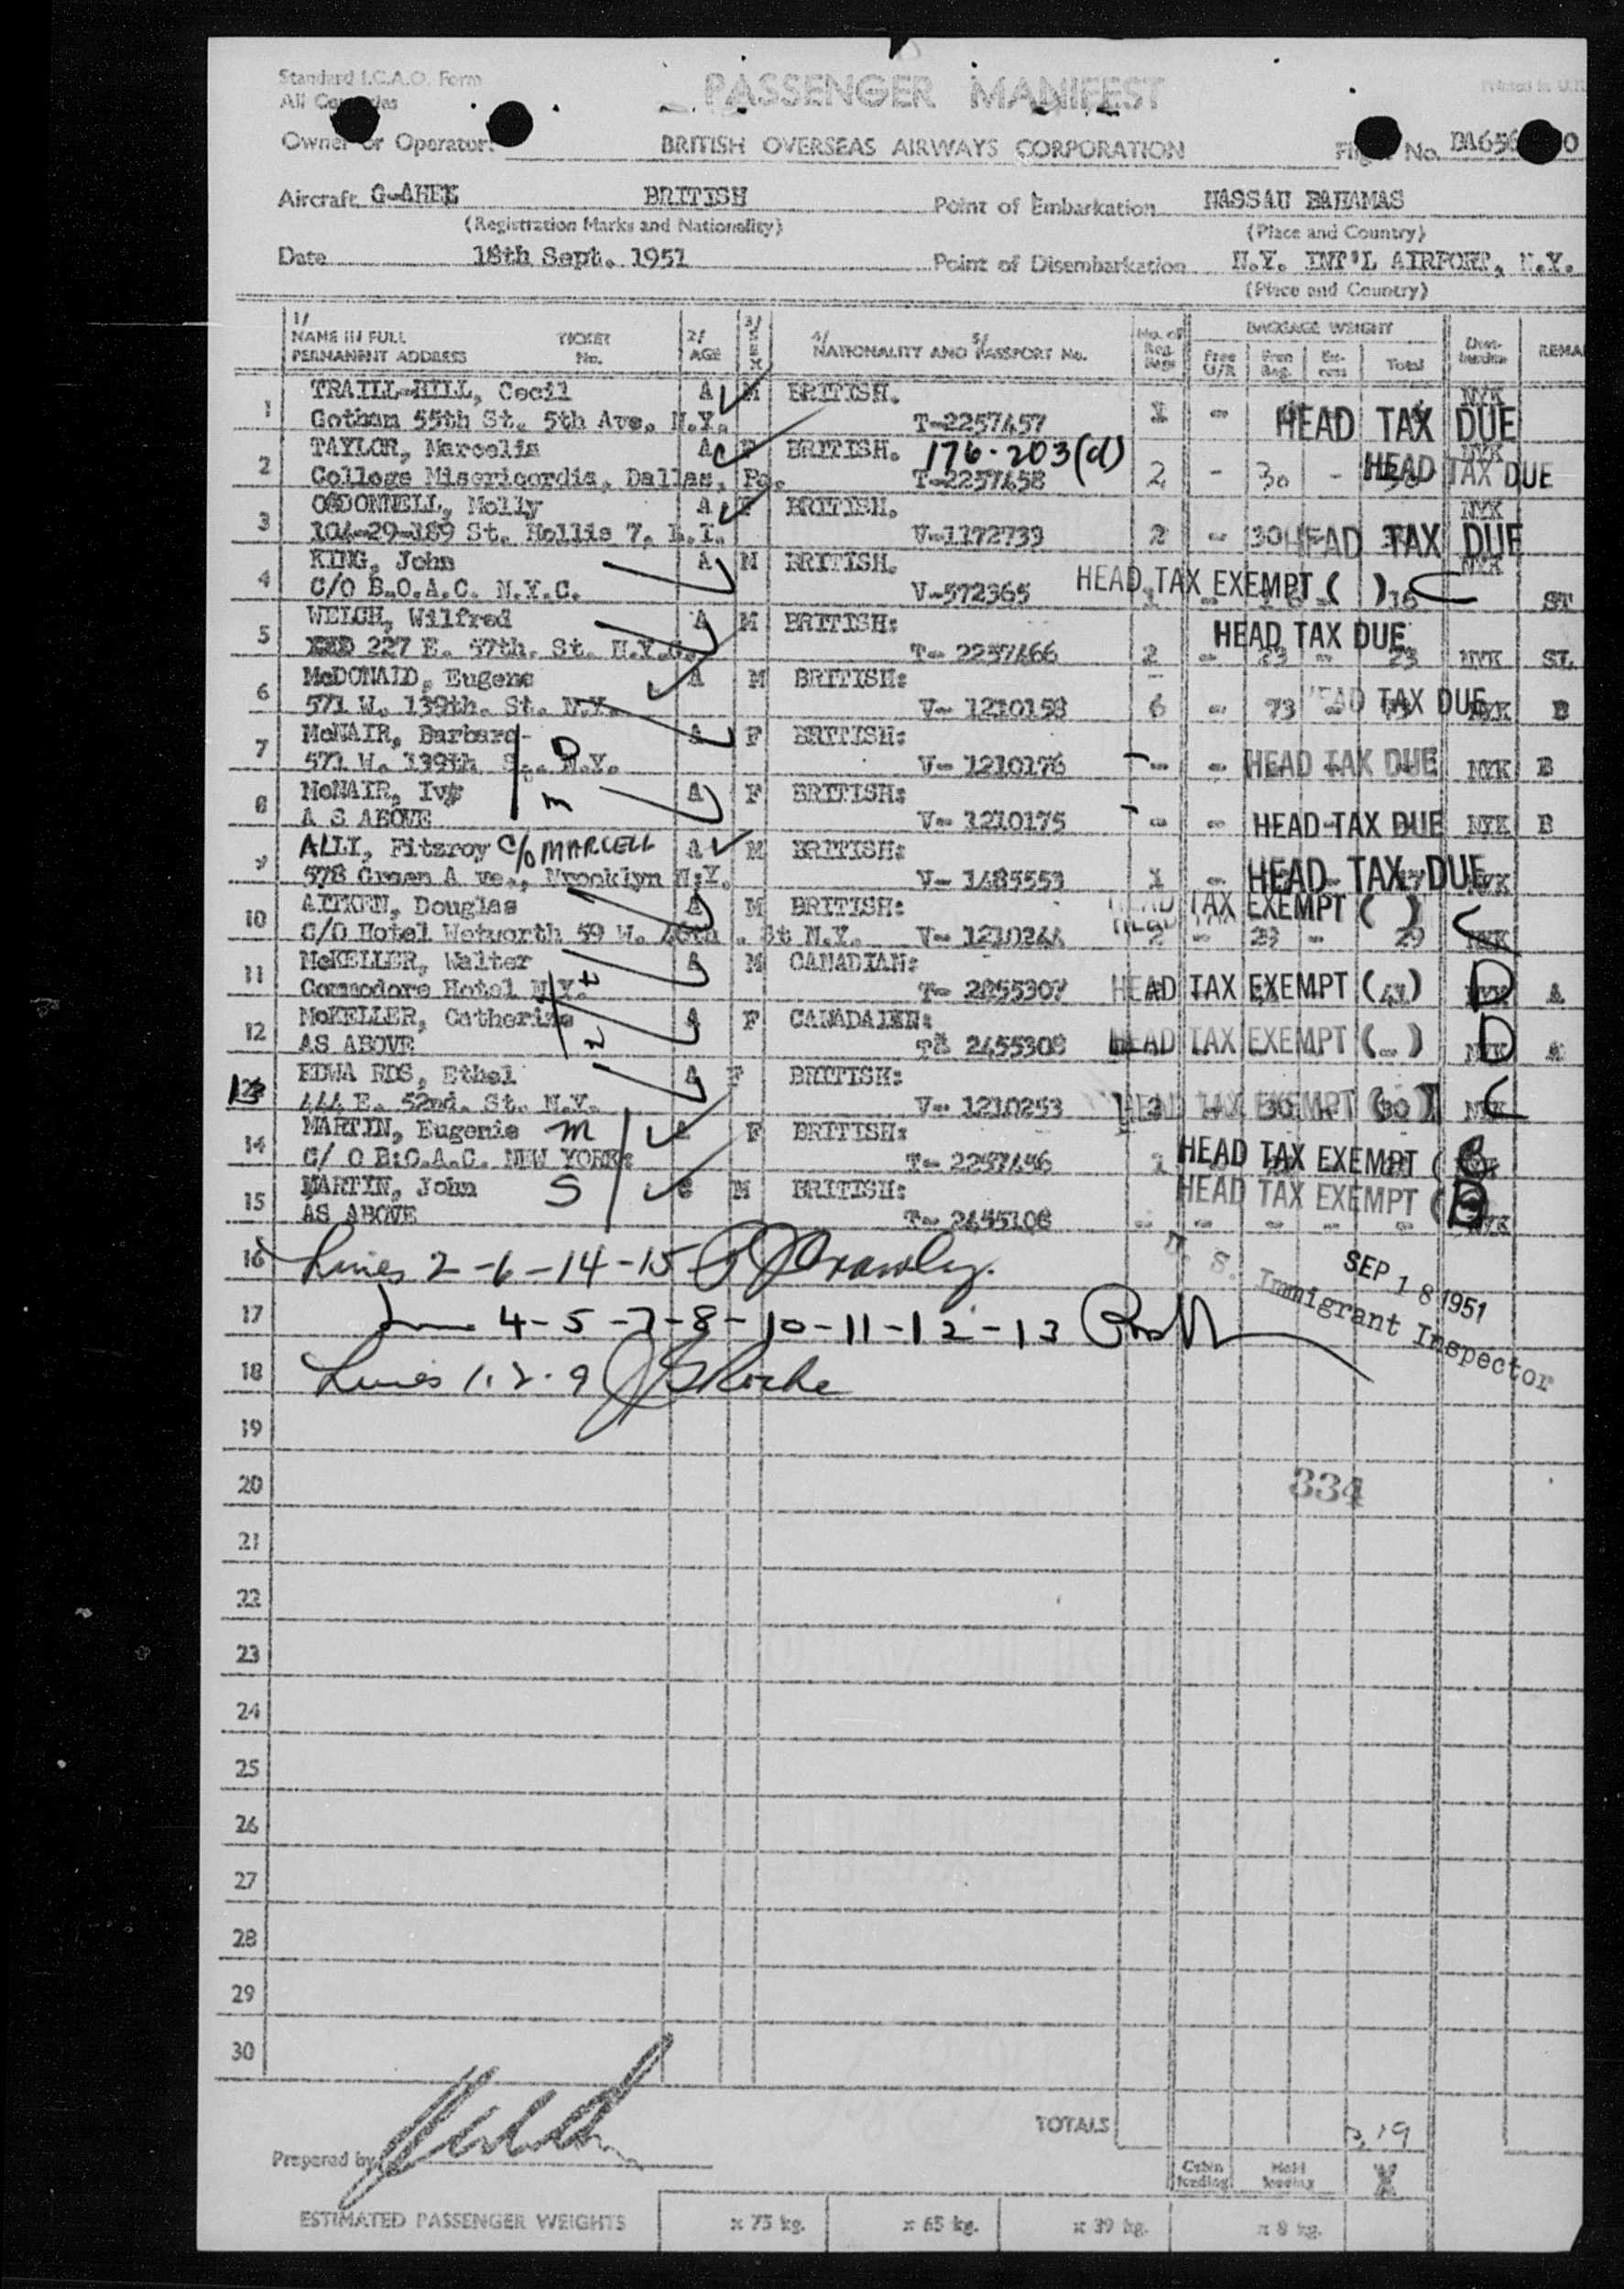 Standard I.C.A.O. Form
PASSENGER MANIFEST
Printed in U.K.
All
Owner or Operator:
BRITISH OVERSEAS AIRWAYS CORPORATION
No. BA656
Aircraft G-AHEK BRITISH
Point of Embarkation NASSAU BAHAMAS
(Registration Marks and Nationality)
(Place and Country)
Date 18th Sept. 1951
Point of Disembarkation N.Y. INT'L AIRPORT, N.Y.
(Place and Country)
1/ NAME IN FULL TICKET 2/ 3/ 4/ 5/ No. of BAGGAGE WEIGHT
PERMANENT ADDRESS No. AGE SEX NATIONALITY AND PASSPORT No. Free Total REMA
1 TRAILL-HILL, Cecil A M BRITISH. NYK
Gotham 55th St. 5th Ave. N.Y. T-2257457 1 - HEAD TAX DUE
2 TAYLOR, Marcelia A F BRITISH. 176.203(d) NYK
College Misericordia, Dallas, Pa. T-2257458 2 - 30 - HEAD TAX DUE
3 O'DONNELL, Molly A F BRITISH. NYK
104-29-189 St. Hollis 7, L.I. V-1172739 2 - 30 HEAD TAX DUE
4 KING, John A M BRITISH. NYK
C/O B.O.A.C. N.Y.C. V-572365 HEAD TAX EXEMPT ( ) 16 C ST
5 WELCH, Wilfred A M BRITISH: HEAD TAX DUE
227 E. 57th. St. N.Y.C. T- 2257466 2 - 23 - 23 NYK SL
6 McDONALD, Eugene A M BRITISH:
571 W. 139th. St. N.Y. V- 1210158 6 - 73 HEAD TAX DUE NYK B
7 McNAIR, Barbara D A F BRITISH:
571 W. 139th St. N.Y. V- 1210176 - - HEAD TAX DUE NYK B
8 McNAIR, Ivy m A F BRITISH:
A S ABOVE V- 1210175 - - HEAD TAX DUE NYK B
9 ALLI, Fitzroy C/O MARCELL A M BRITISH:
578 Green A ve., Brooklyn N.Y. V- 1485553 1 - HEAD TAX DUE NYK
10 AITKEN, Douglas A M BRITISH: HEAD TAX EXEMPT ( ) C
C/O Hotel Wetworth 59 W. 46th . St N.Y. V- 1210244 2 - 29 - 29 NYK
11 McKELLER, Walter A M CANADIAN:
Commodore Hotel N.Y. T- 2455307 HEAD TAX EXEMPT ( ) D NYK A
12 McKELLER, Catherine A F
AS ABOVE 2455308 HEAD TAX EXEMPT ( - ) D NYK A
13 EDWA RDS, Ethel A F BRITISH:
444 E. 52nd. St. N.Y. V- 1210253 HEAD TAX EXEMPT ( ) C NYK
14 MARTIN, Eugenie m F BRITISH:
C/ O B:O.A.C. NEW YORK: T- 2257446 HEAD TAX EXEMPT (
15 MARTIN, John S M BRITISH:
AS ABOVE T- 2455108 HEAD TAX EXEMPT ( NYK
16 Lines 2-6-14-15
SEP 18 1951
U. S. Immigrant Inspector
17 4-5-7-8-10-11-12-13
18 Lines 1.2.9
19
20 334
21
22
23
24
25
26
27
28
29
30
TOTALS
Prepared by
Cabin loading Hold loading
ESTIMATED PASSENGER WEIGHTS x 75 kg. x 65 kg. x 39 kg. x 8 kg.